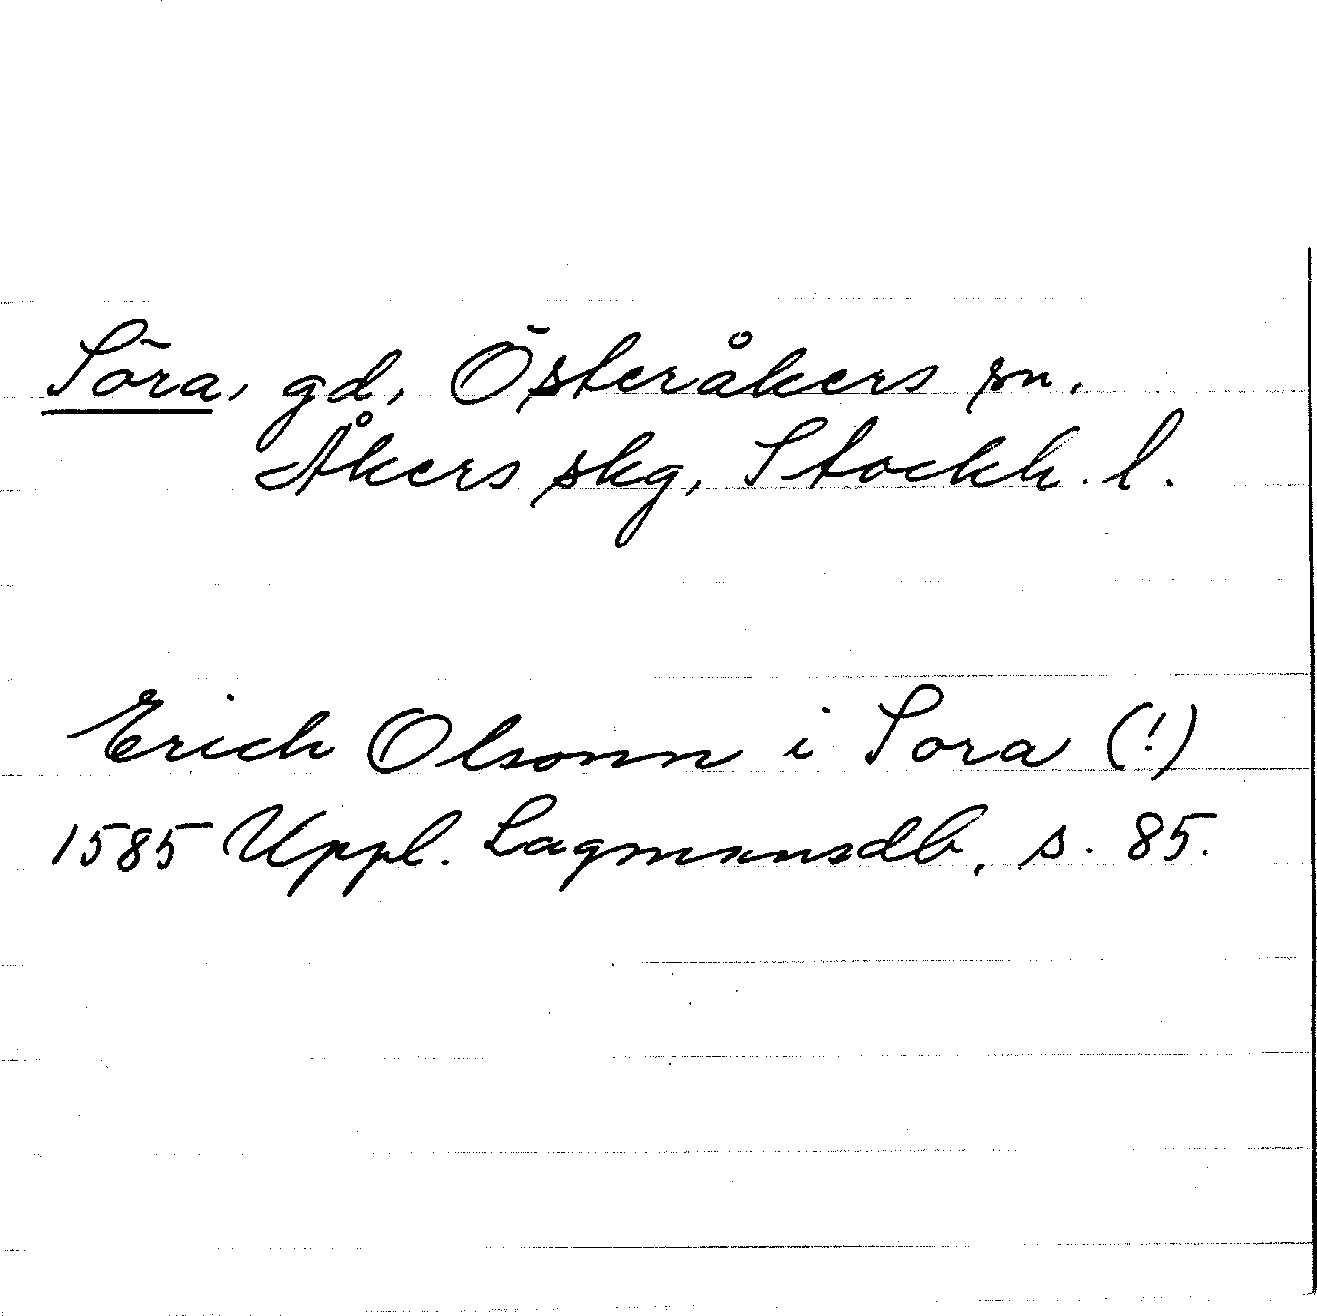 Söra, gd, Österåkers sn,
Åkers skg, Stockh. l.
Erich Olsonn i Sora (!)
1585 Uppl. Lagmansdb, s. 85.